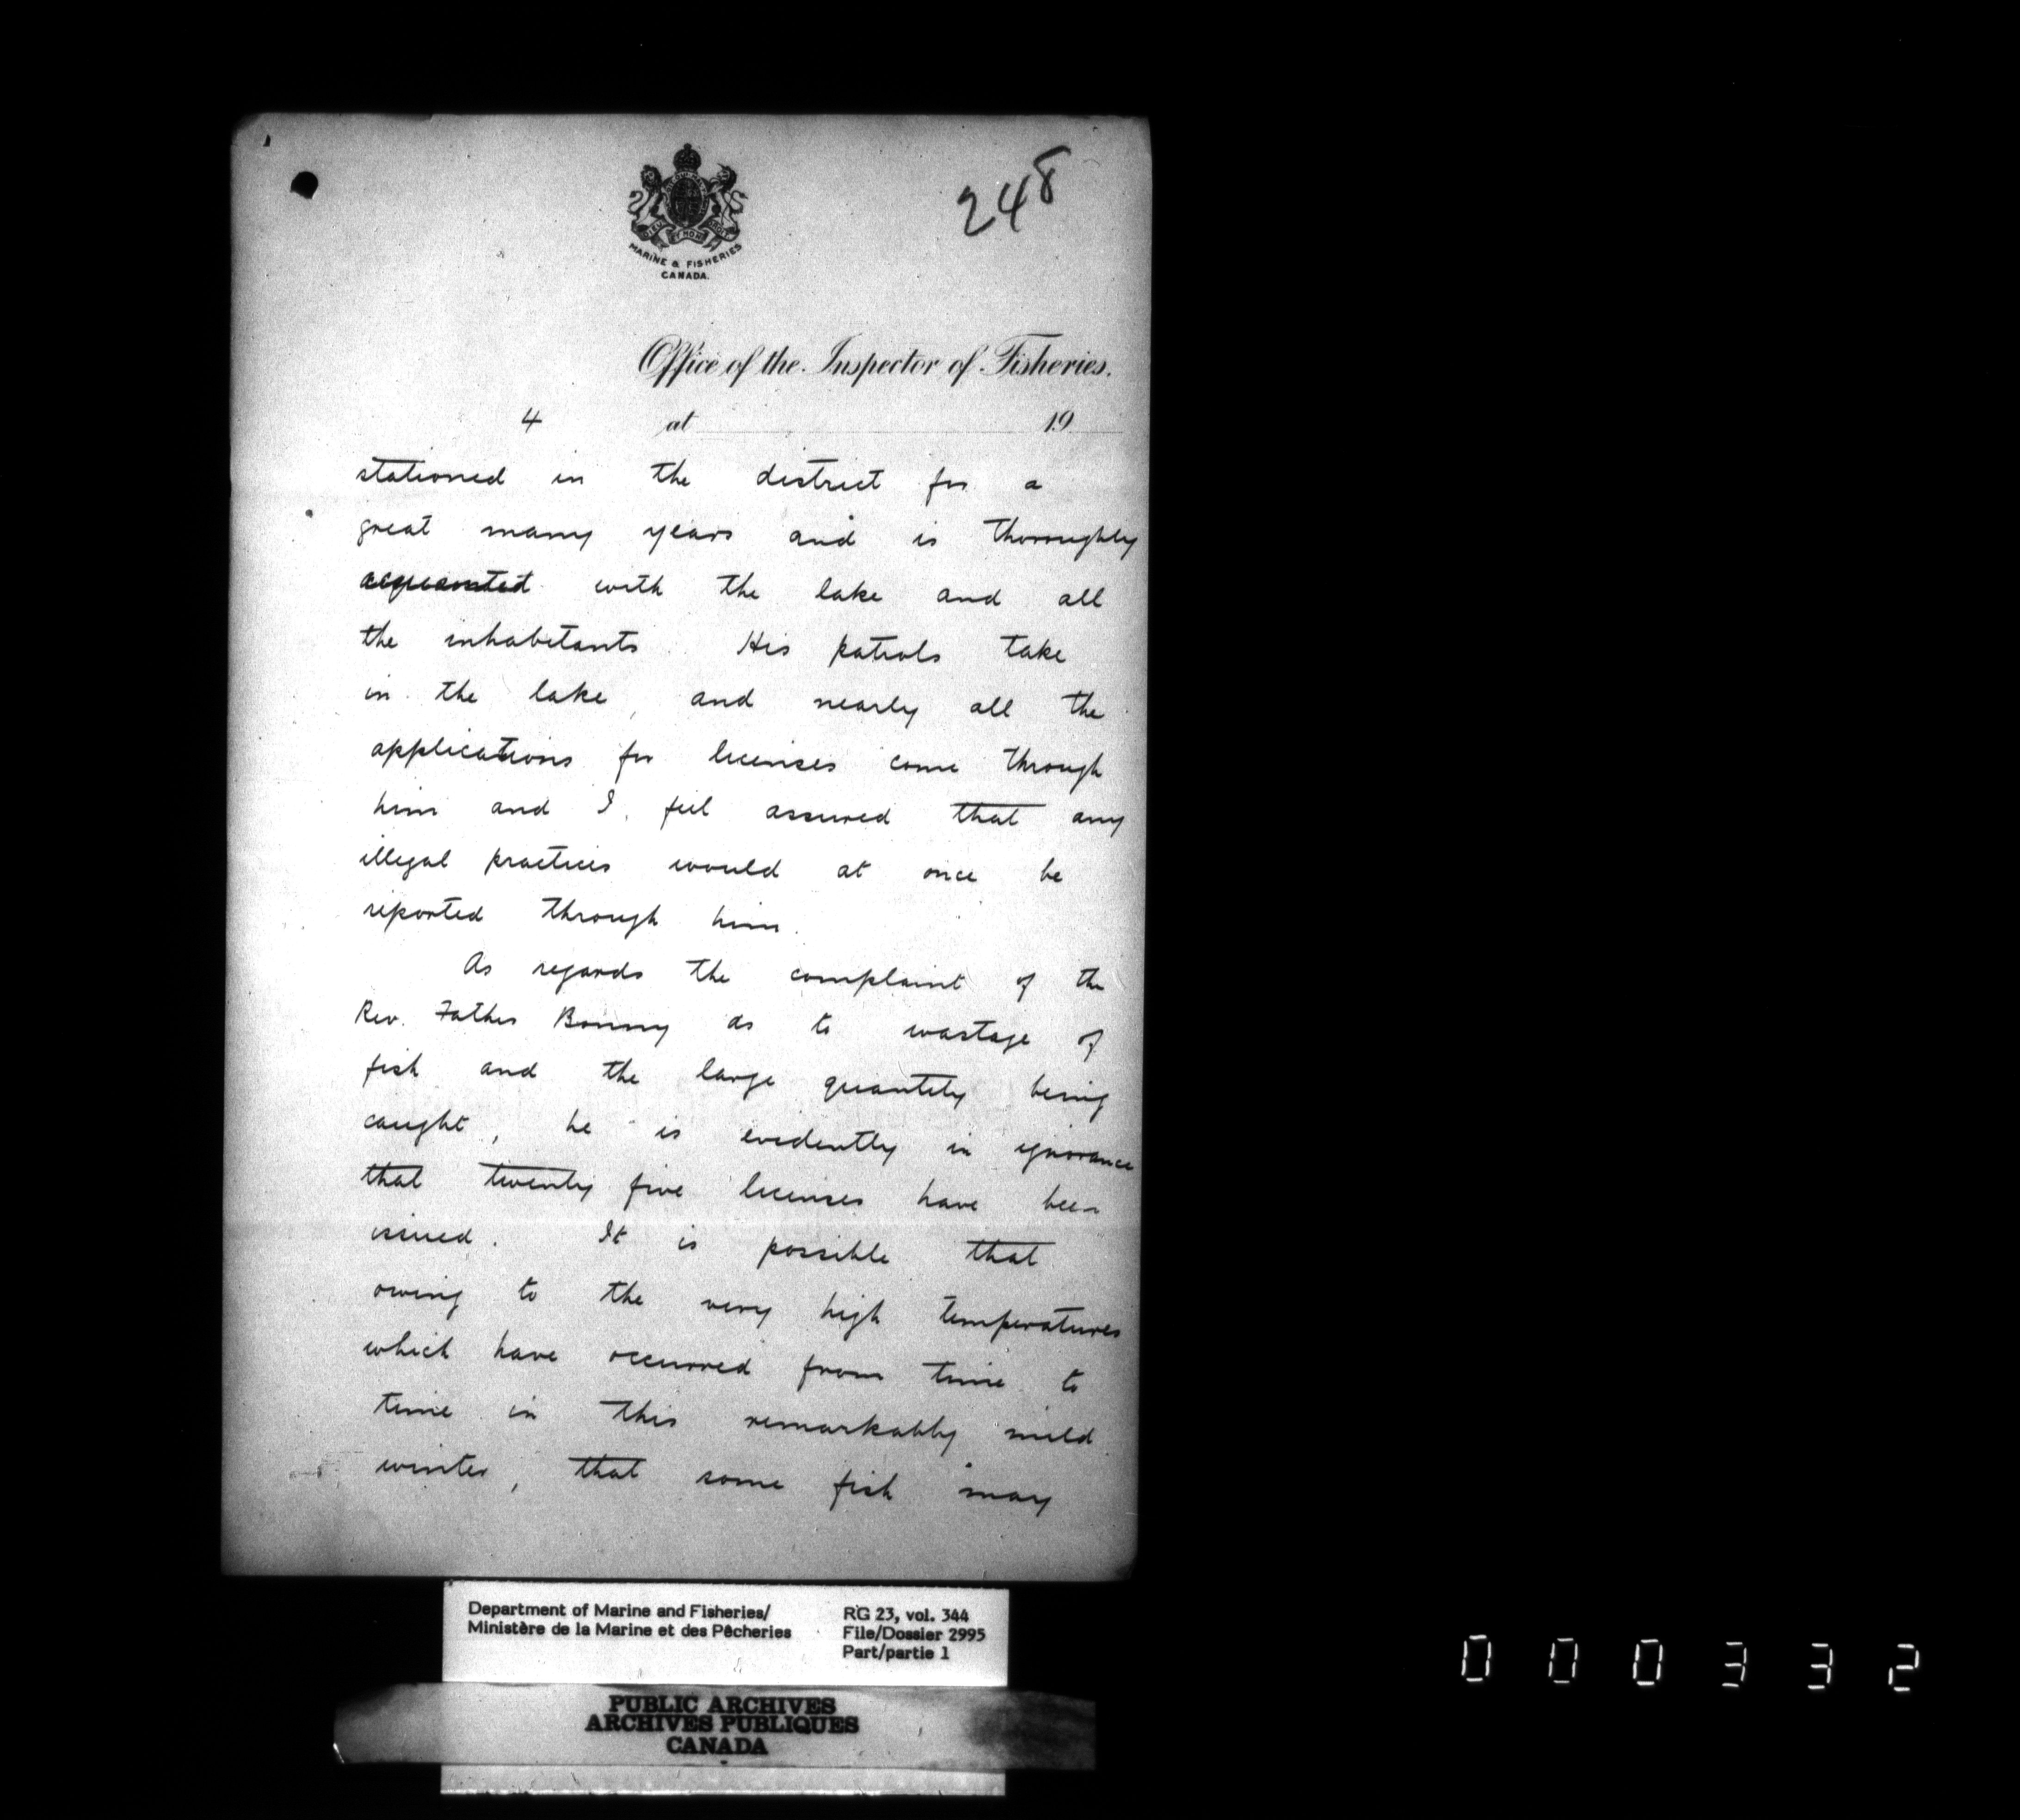 248
DIEU ET MON DROIT
MARINE & FISHERIES
CANADA.
Office of the Inspector of Fisheries.
4 at 19
stationed in the district for a
great many years and is thoroughly
acquainted with the lake and all
the inhabitants. His patrols take
in the lake, and nearly all the
applications for licenses come through
him and I feel assured that any
illegal practices would at once be
reported through him.
As regards the complaint of the
Rev. Father Bonny as to wastage of
fish and the large quantity being
caught, he is evidently in ignorance
that twenty five licenses have been
issued. It is possible that
owing to the very high temperatures
which have occurred from time to
time in this remarkably mild
winter, that some fish may
Department of Marine and Fisheries/
Ministère de la Marine et des Pêcheries
RG 23, vol. 344
File/Dossier 2995
Part/partie 1
PUBLIC ARCHIVES
ARCHIVES PUBLIQUES
CANADA
000332